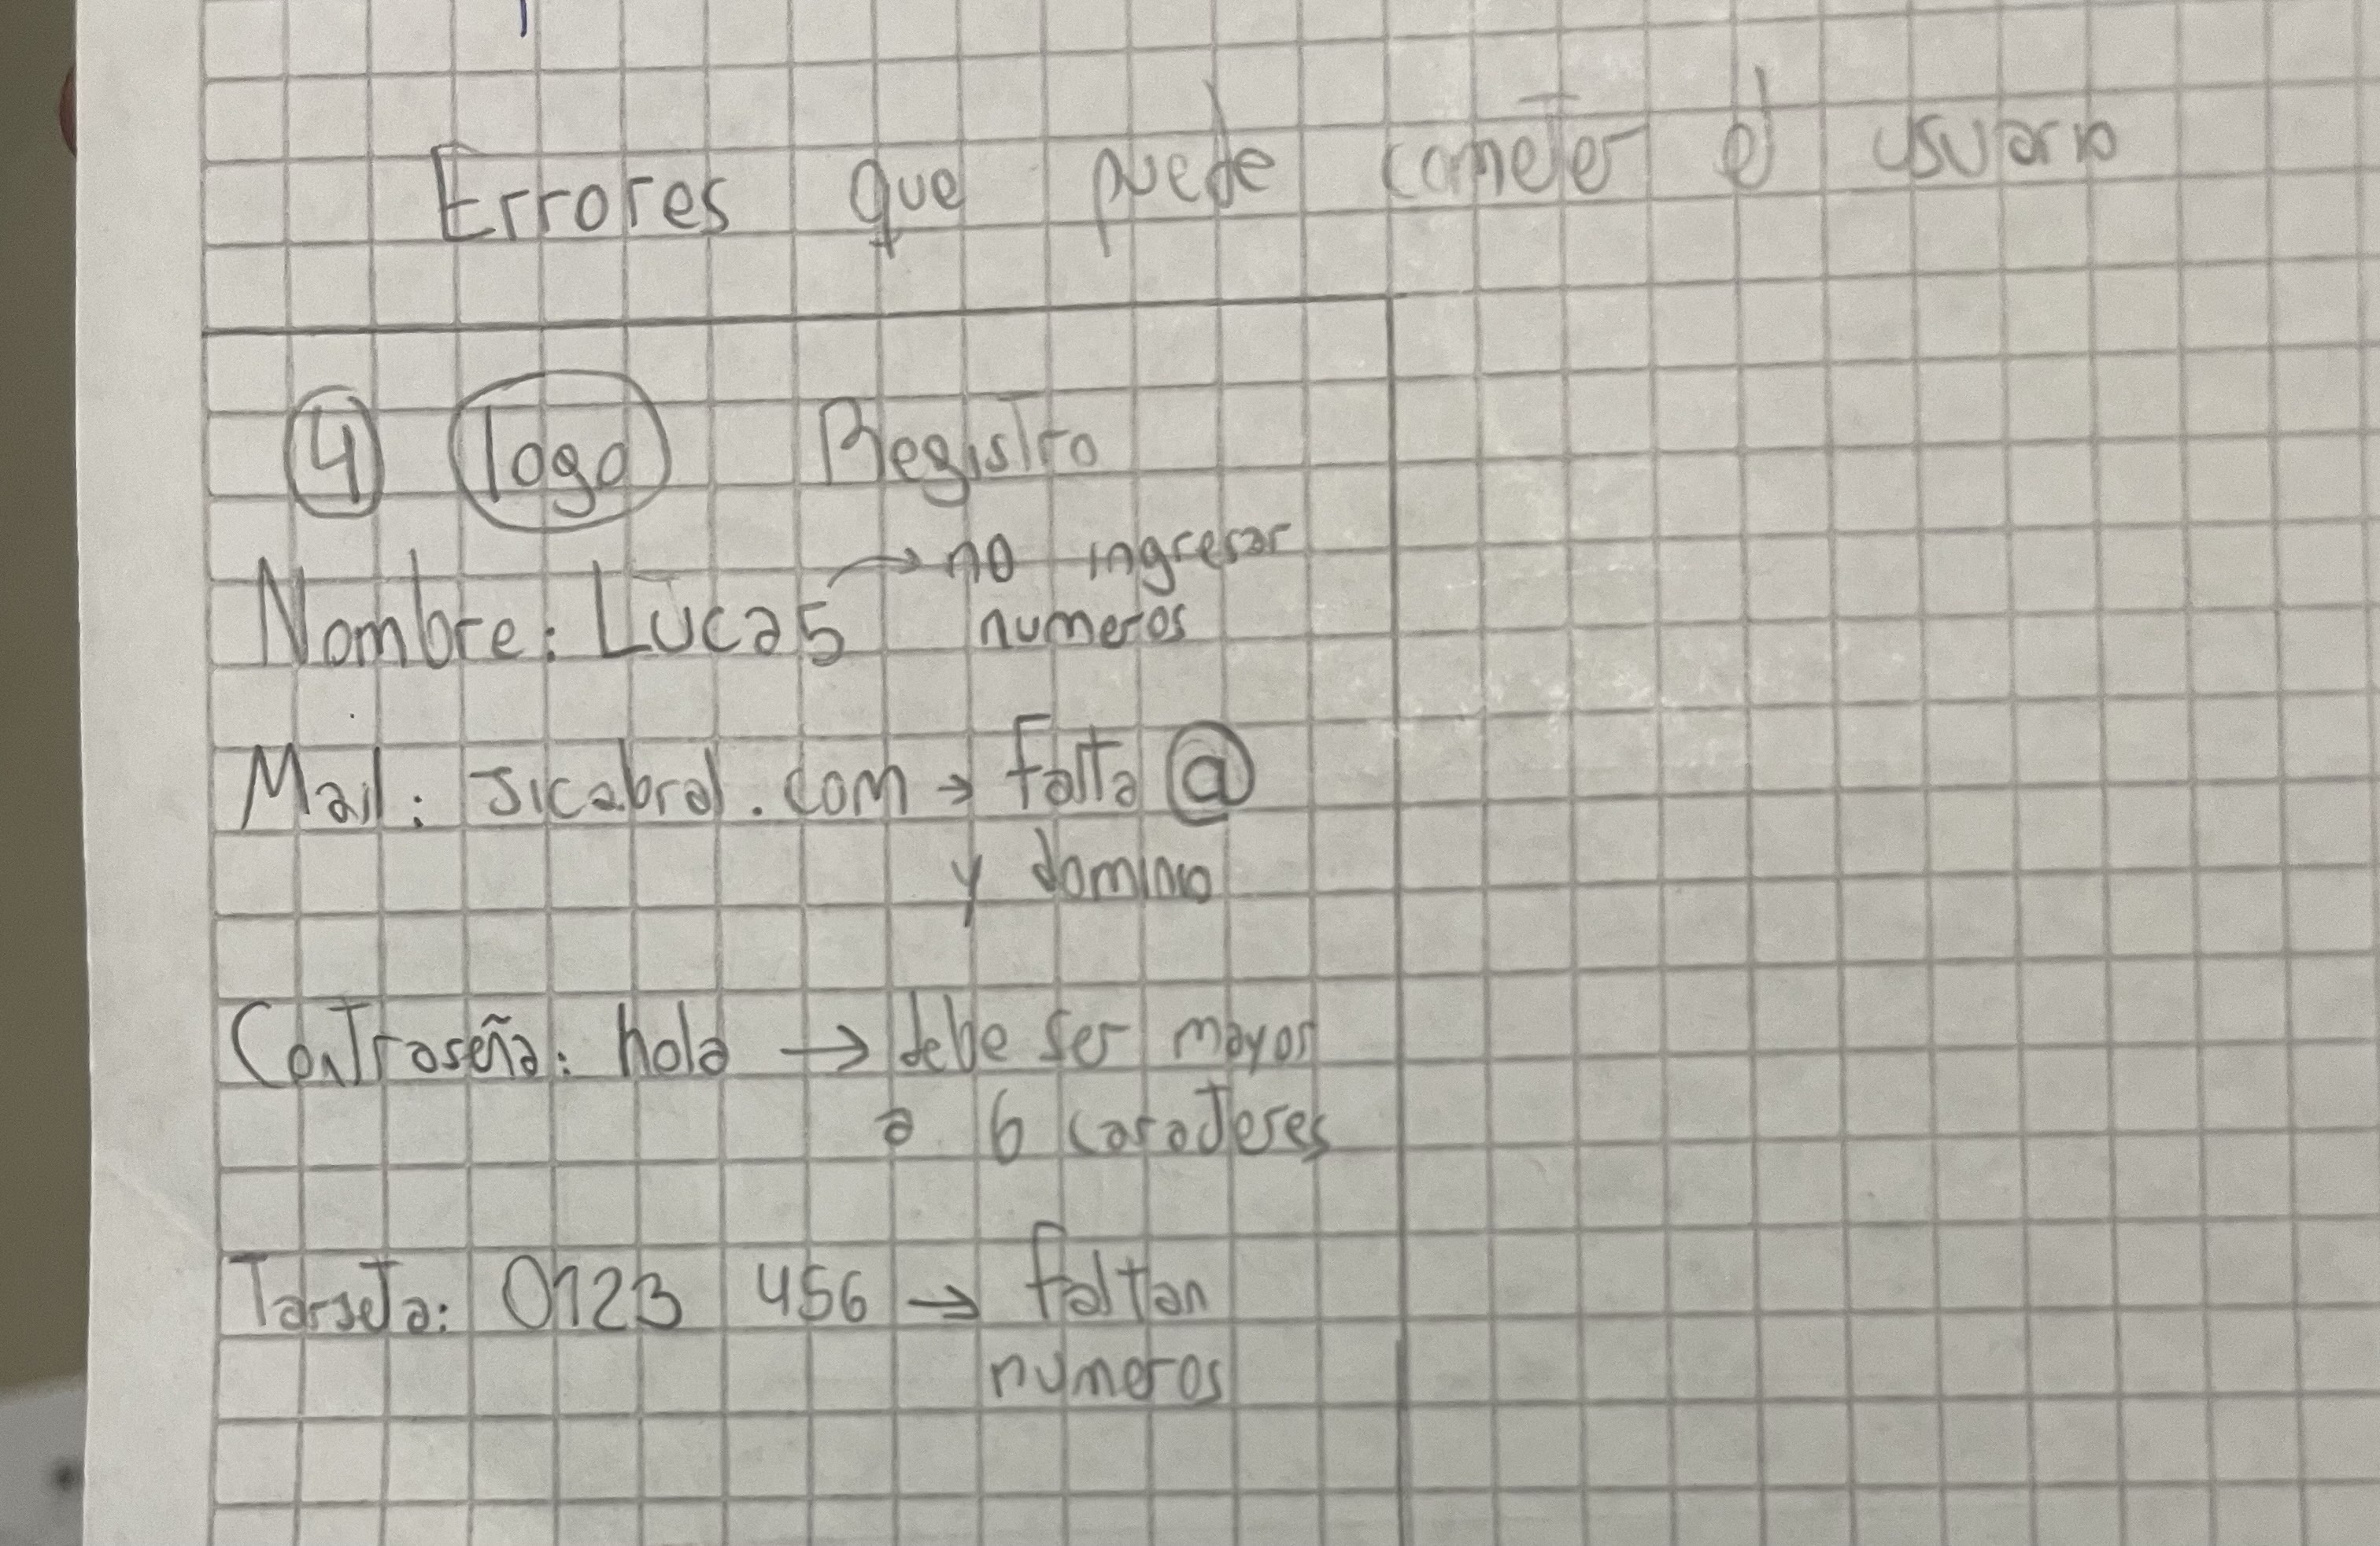 Errores que puede cometer el usuario
4 logo Registro
Nombre: Luca5 → no ingresar
numeros
Mail: jicabral.com → falta @
y dominio
Contraseña: hola → debe ser mayor
a 6 caracteres
Tarjeta: 0123 456 → faltan
numeros